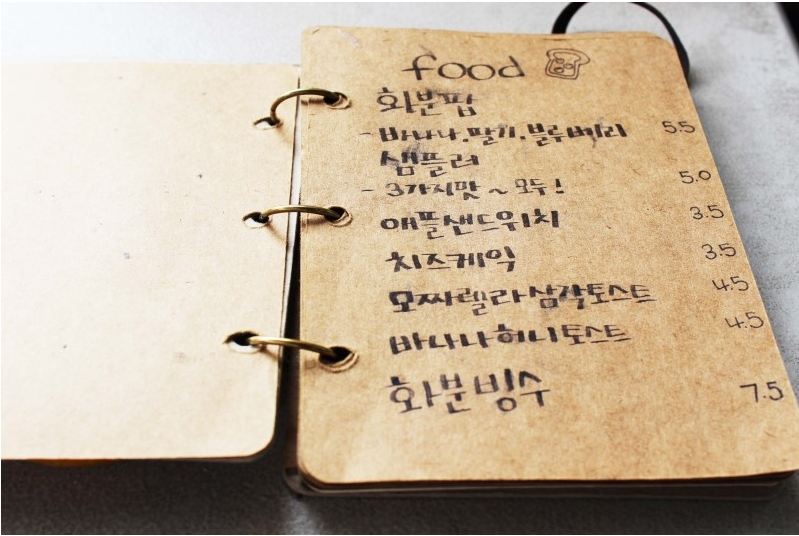 food
화분팝
- 바나나.딸기.블루베리 5.5
샘플러
- 3가지맛 ~ 모두! 5.0
애플샌드위치 3.5
치즈케익 3.5
모짜렐라삼각토스트 4.5
바나나허니토스트 4.5
화분빙수 7.5